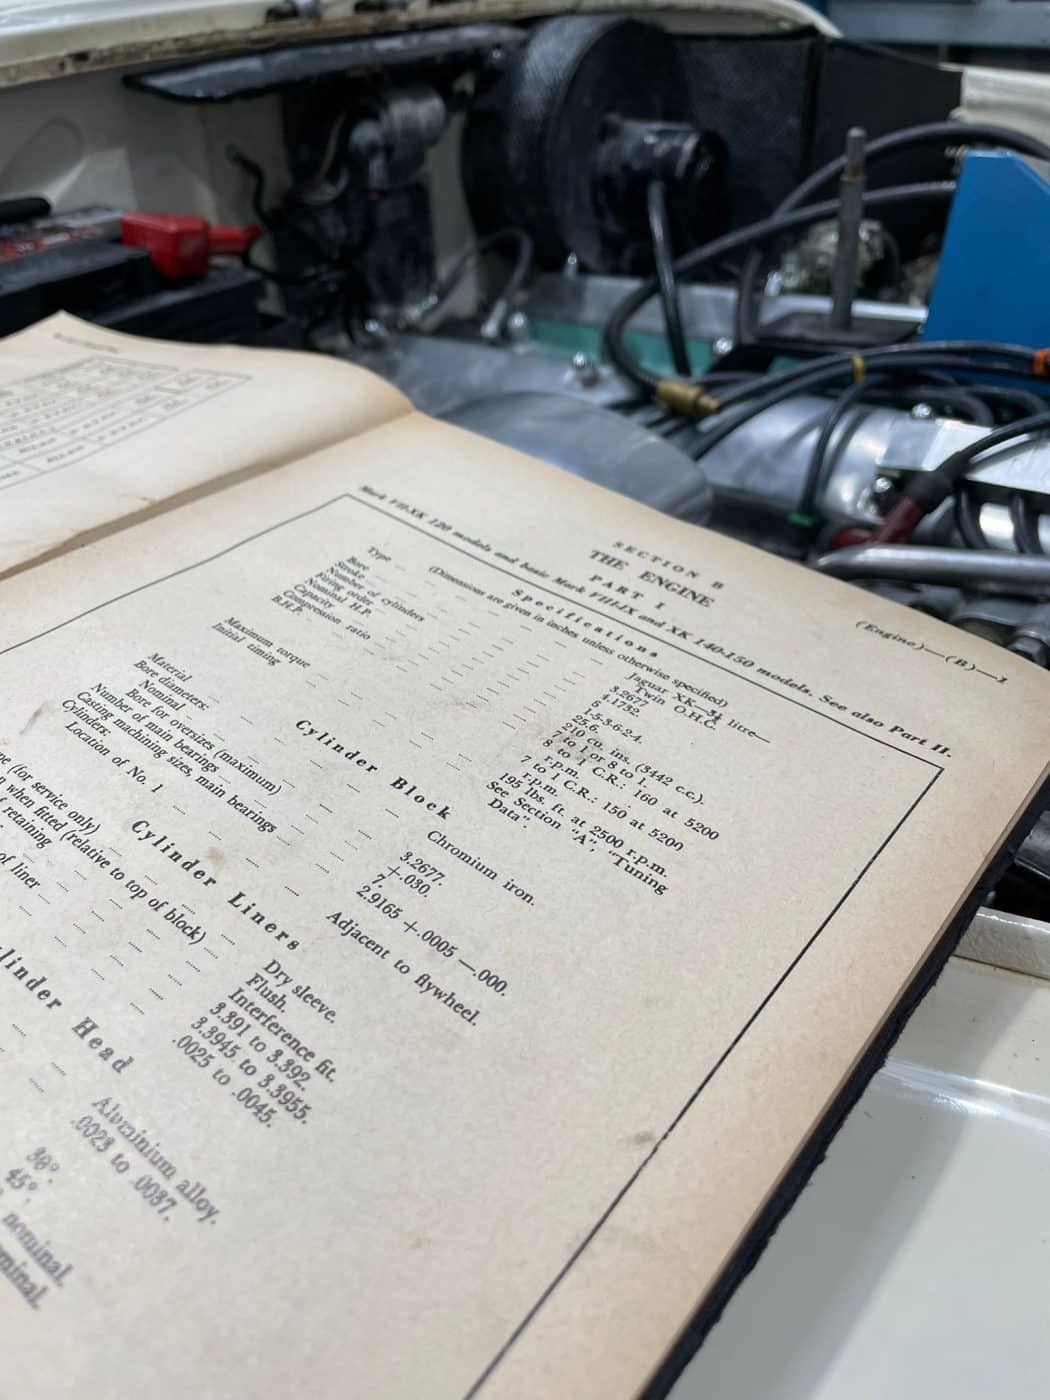 (Engine)—(B)—1
SECTION B
THE ENGINE
PART I
Mark VII-XK 120 models and basic Mark VIII-IX and XK 140-150 models. See also Part II.
Specifications
(Dimensions are given in inches unless otherwise specified)
Type Jaguar XK—3½ litre—
Twin O.H.C.
Bore 3.2677
Stroke 4.1732.
Number of cylinders 6
Firing order 1-5-3-6-2-4.
Nominal H.P. 25.6.
Capacity 210 cu. ins. (3442 c.c.).
Compression ratio 7 to 1 or 8 to 1.
B.H.P. 8 to 1 C.R.: 160 at 5200
r.p.m.
7 to 1 C.R.: 150 at 5200
r.p.m.
Maximum torque 195 lbs. ft. at 2500 r.p.m.
Initial timing See Section "A", "Tuning
Data".
Cylinder Block
Material Chromium iron.
Bore diameters:
Nominal 3.2677.
Bore for oversizes (maximum) +.030.
Number of main bearings 7.
Casting machining sizes, main bearings 2.9165 +.0005 —.000.
Cylinders:
Location of No. 1 Adjacent to flywheel.
Cylinder Liners
(for service only) Dry sleeve.
when fitted (relative to top of block) Flush.
retaining Interference fit.
3.391 to 3.392.
of liner 3.3945 to 3.3955.
.0025 to .0045.
Head
Aluminium alloy.
.0023 to .0037.
30°.
45°.
nominal.